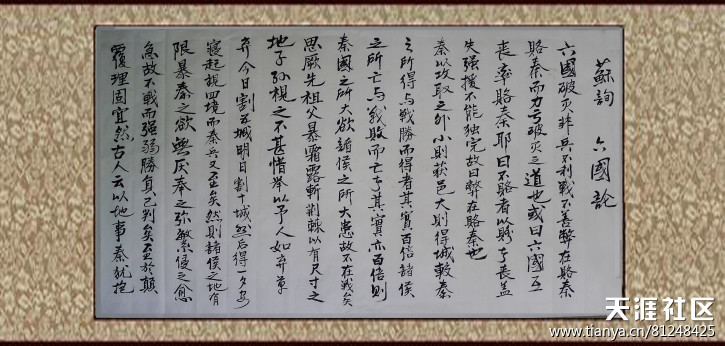 蘇詢 六國論
六國破灭非兵不利戰不善弊在賂秦
賂秦而力亏破灭之道也或曰六國互
丧率賂秦耶曰不賂者以賂者丧盖
失强援不能独完故曰弊在賂秦也
秦以攻取之外小則获邑大則得城較秦
之所得与戰勝而得者其實百倍諸侯
之所亡与戰败而亡者其實亦百倍則
秦國之所大欲諸侯之所大患故不在戰矣
思厥先祖父暴霜露斬荆棘以有尺寸之
地子孙視之不甚惜举以予人如弃草
弃今日割五城明日割十城然后得一夕安
寝起視四境而秦兵又至矣然則諸侯之地有
限暴秦之欲無厌奉之弥繁侵之愈
急故不戰而强弱勝負已判矣至於颠
覆理固宜然古人云以地事秦犹抱
天涯社区
www.tianya.cn/81248425